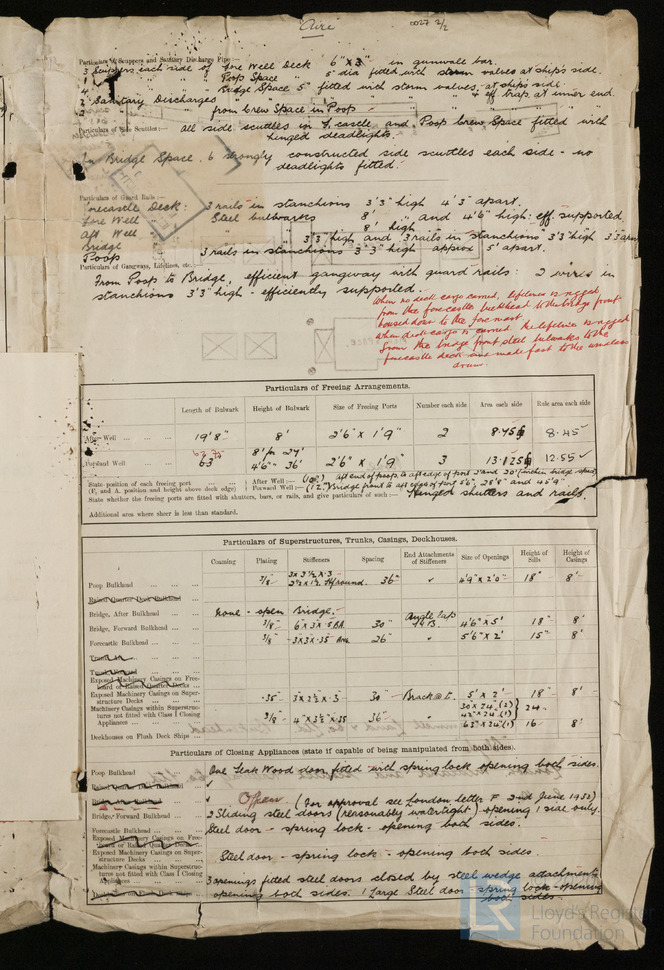 "Aire"
0027 2/2
Particulars of Scuppers and Sanitary Discharge Pipe:—
3 Scuppers each side of Fore Well Deck 6" x 3" in gunwale bar.
1 " " " " Poop Space 5" dia fitted with storm valves at ship's side.
4 " " " " Bridge Space 5" fitted with storm valves at ship's side
2 Sanitary Discharges " " " " & eff. trap at inner end.
2 " from Crew Space in Poop - "
Particulars of Side Scuttles:— all side scuttles in F. castle and Poop crew Space fitted with
hinged deadlights.
In Bridge Space. 6 strongly constructed side scuttles each side - no
deadlights fitted.
Particulars of Guard Rails:—
Forecastle Deck: 3 rails in stanchions 3'3" high 4'3" apart.
Fore Well Steel bulwarks 8' " and 4'6" high: eff. supported
Aft Well " " 8' high
Bridge " 3'3" high and 3 rails in stanchions 3'3" high
Poop 3 rails in stanchions 3'3" high approx 5' apart.
Particulars of Gangways, Lifelines, etc.
From Poop to Bridge, efficient gangway with guard rails: 2 wires in
stanchions 3'3" high - efficiently supported.
When no deck cargo carried, lifelines is rigged
from the forecastle bulkhead to the bridge front
housed down to the foremast
When deck cargo is carried the lifeline is rigged
from the bridge front steel bulwarks to the
forecastle deck and made fast to the windlass
drum.
Particulars of Freeing Arrangements.
Length of Bulwark Height of Bulwark Size of Freeing Ports Number each side Area each side Rule area each side
After Well 19'8" 8' 2'6" x 1'9" 2 8.75 8.45
62.75
Forward Well 63' 8' for 27' 4'6" " 36' 2'6" x 1'9" 3 13.125 12.55 ✓
State position of each freeing port (F. and A. position and height above deck edge) After Well:— (10") aft end of poop, to aft edge of port 3' and 20' (within bridge space)
Forward Well:— (12") Bridge front to aft edge of port 5'6", 28'8" and 45'9"
State whether the freeing ports are fitted with shutters, bars, or rails, and give particulars of such:— Hinged shutters and rails.
Additional area where sheer is less than standard.
Particulars of Superstructures, Trunks, Casings, Deckhouses.
Coaming Plating Stiffeners Spacing End Attachments of Stiffeners Size of Openings Height of Sills Height of Casings
Poop Bulkhead 3/8 3 x 3½ x .3 2½ x 1½ ½ round. 36" " 4'9" x 2'0" 18" 8'
Raised Quarter Deck Bulkhead
Bridge, After Bulkhead None - open Bridge.
Bridge, Forward Bulkhead 3/8" 6 x 3 x .5 BA. 30" Angle Lugs T & B. 4'6" x 5' 18" 8'
Forecastle Bulkhead 3/8 3 x 3 x .35 Ang 26" " 5'6" x 2' 15" 8'
Trunk, Aft
Trunk, Forward
Exposed Machinery Casings on Freeboard or Raised Quarter Decks
Exposed Machinery Casings on Superstructure Decks .35 3 x 2½ x .3 30" 5' x 2' 18" 8'
Machinery Casings within Superstructures not fitted with Class I Closing Appliances 3/8 4" x 3½ x .35 36" 30 x 24 (2) 42" x 24 (1) 24
Deckhouses on Flush Deck Ships 63" x 26" (1) 16 8'
Particulars of Closing Appliances (state if capable of being manipulated from both sides).
Poop Bulkhead One Teak Wood door fitted with spring lock opening both sides.
Raised Quarter Deck Bulkhead "
Bridge After Bulkhead Open (For approval see London letter F 2nd June 1932)
Bridge, Forward Bulkhead 2 Sliding steel doors (reasonably watertight) opening 1 side only.
Forecastle Bulkhead Steel door - spring lock - opening both sides.
Exposed Machinery Casings on Freeboard or Raised Quarter Decks
Exposed Machinery Casings on Superstructure Decks Steel door - spring lock - opening both sides
Machinery Casings within Superstructures not fitted with Class I Closing Appliances 3 openings fitted steel doors closed by steel wedge attachments
Deckhouses on Flush Deck Ships opening both sides. 1 Large Steel door - spring lock - opening
both sides.
LR
Lloyd's Register
Foundation